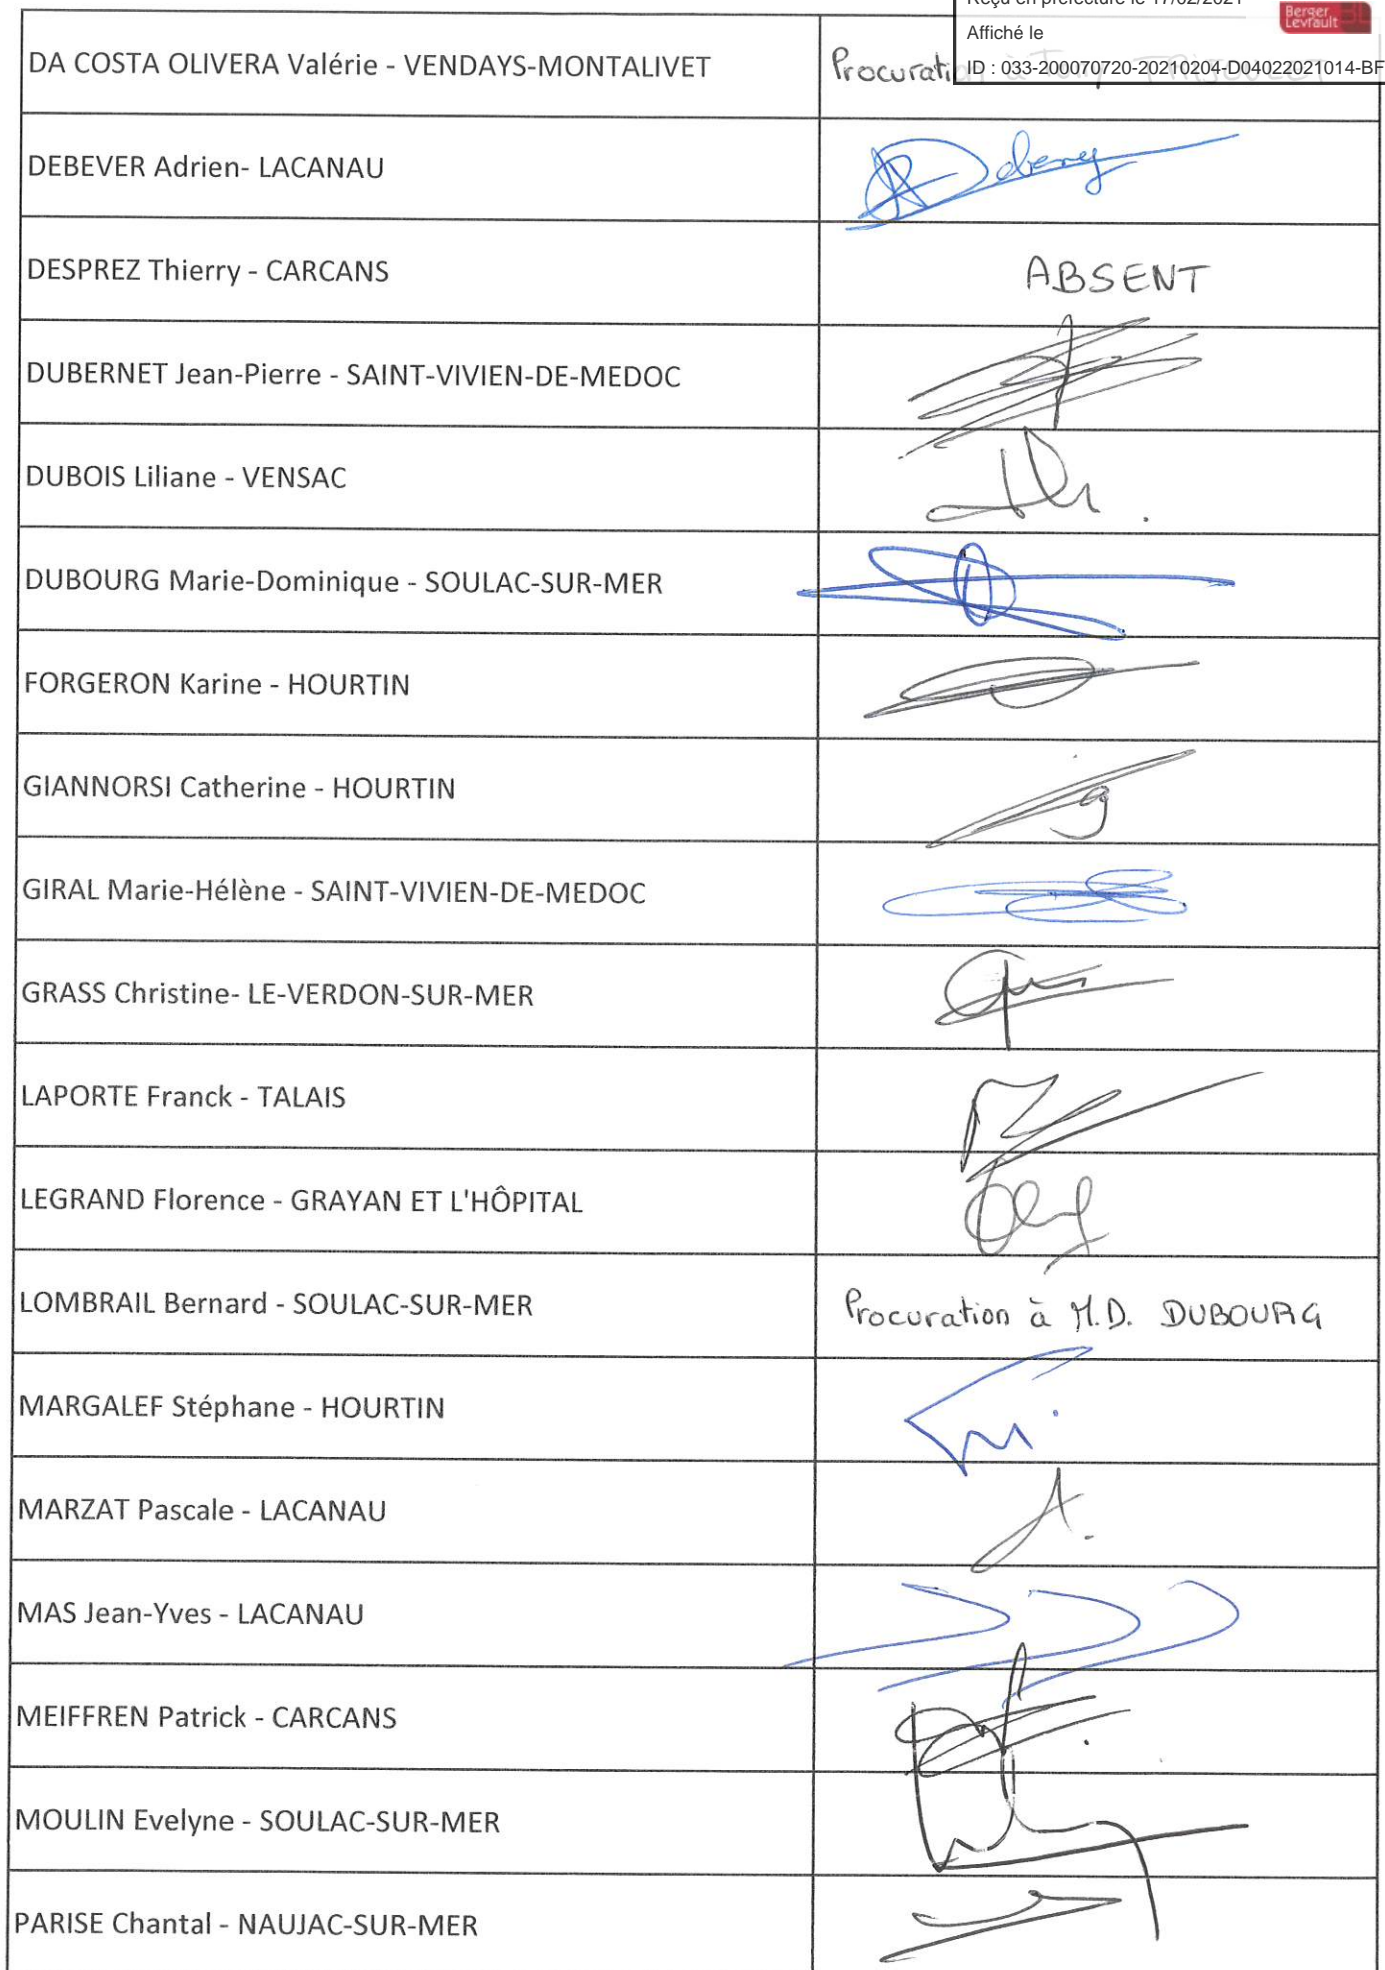 Reçu en préfecture le 17/02/2021
Berger
Levrault
Affiché le
ID : 033-200070720-20210204-D04022021014-BF
DA COSTA OLIVERA Valérie - VENDAYS-MONTALIVET
DEBEVER Adrien- LACANAU
DESPREZ Thierry - CARCANS ABSENT
DUBERNET Jean-Pierre - SAINT-VIVIEN-DE-MEDOC
DUBOIS Liliane - VENSAC
DUBOURG Marie-Dominique - SOULAC-SUR-MER
FORGERON Karine - HOURTIN
GIANNORSI Catherine - HOURTIN
GIRAL Marie-Hélène - SAINT-VIVIEN-DE-MEDOC
GRASS Christine- LE-VERDON-SUR-MER
LAPORTE Franck - TALAIS
LEGRAND Florence - GRAYAN ET L'HÔPITAL
LOMBRAIL Bernard - SOULAC-SUR-MER Procuration à M.D. DUBOURG
MARGALEF Stéphane - HOURTIN
MARZAT Pascale - LACANAU
MAS Jean-Yves - LACANAU
MEIFFREN Patrick - CARCANS
MOULIN Evelyne - SOULAC-SUR-MER
PARISE Chantal - NAUJAC-SUR-MER